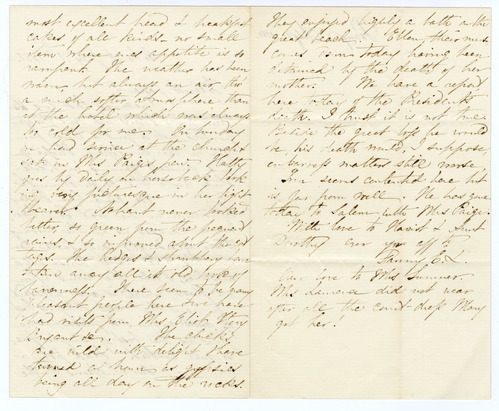 most excellent bread & breakfast
cakes of all kinds no small
item where ones appetite is so
rampant. The weather has been
warm, but always an air tho'
a much softer atmosphere than
at the hotel which was always
too cold for me. On Sunday
we had service at the church &
sat in Mrs Paige's pew. Hatty
goes by daily on horseback look
ing very picturesque in her
Nahant never looked
better, so green from the frequent
rains, & so improved about the
The hedges & shrubbery have
taken away all its old
There seem to be some
pleasant people here & we have
had visits from Mrs Eliot, Mrs
Bryant &c. The chicks
are wild with delight & have
turned as brown as gypsies
being all day on the rocks.
They enjoyed highly a bath on the
great beach. Ellen their nurse
comes home today having been
detained by the death of her
mother. We have a report
here today of the President's
death. I trust it is not true.
Beside the great loss he would
be, his death would, I suppose
embarrass matters still worse.
seems contented here but
is far from well. He has gone
today to Salem with Mrs Paige.
With love to Harriet & Aunt
Dorothy ever yr aff te
Fanny E. L.
Our love to Mrs Sumner.
Mrs did not wear
after all the court-dress Mary
got her.